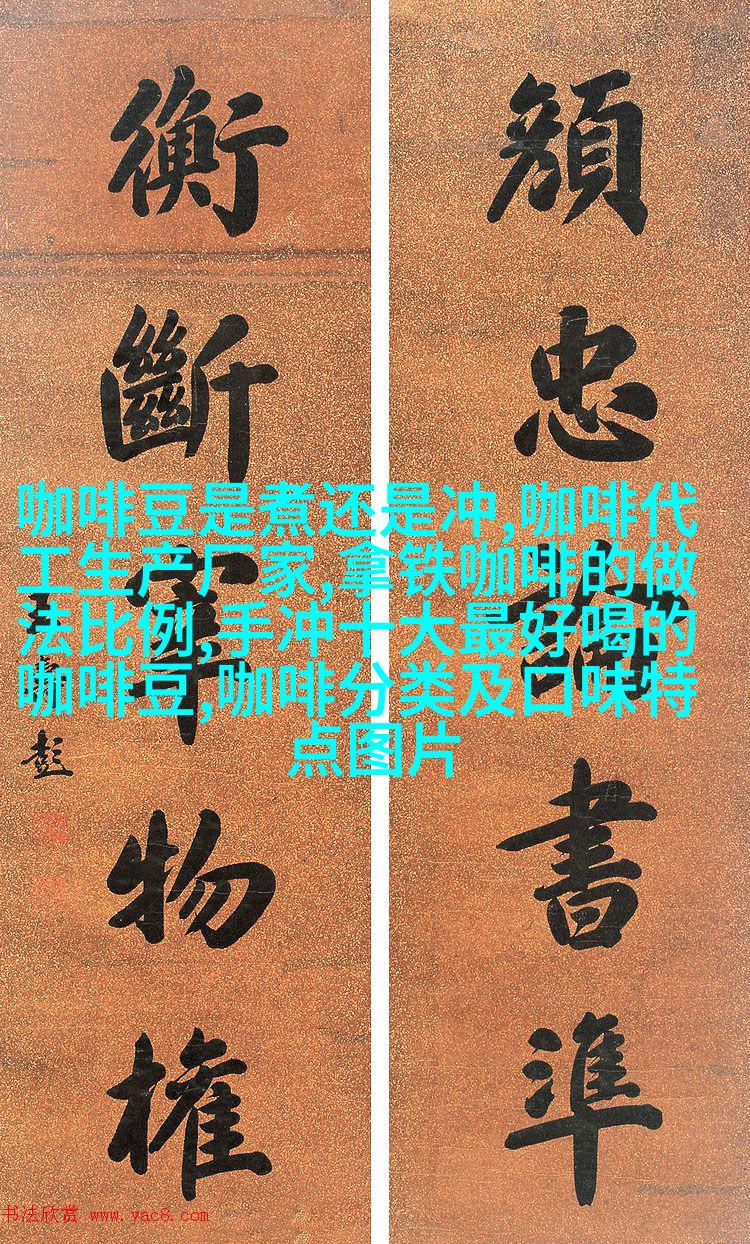 顏忠書準
衡斷宰物權
彭
咖啡豆是煮还是冲,咖啡代
工生产厂家,拿铁咖啡的做
法比例,手冲十大最好喝的
咖啡豆,咖啡分类及口味特
点图片
书法欣赏 www.yac8.com